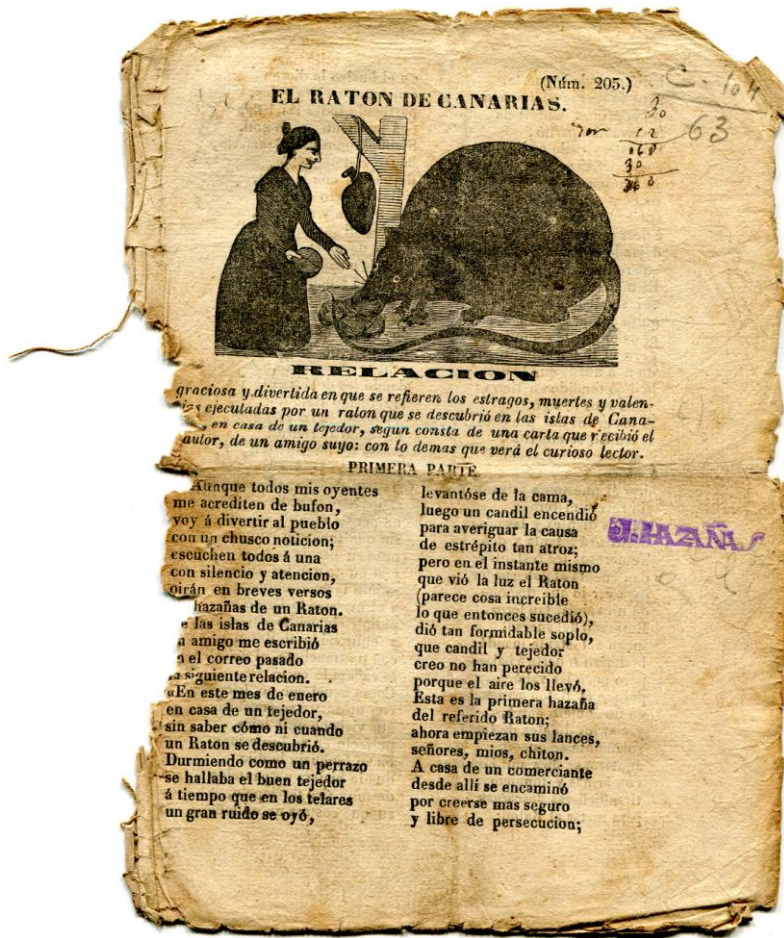 (Núm. 205.)
C-104
63
12
060
30
360
EL RATON DE CANARIAS.
RELACION
graciosa y divertida en que se refieren los estragos, muertes y valen-
ias ejeculadas por un raton que se descubrió en las islas de Cana-
, en casa de un tejedor, segun consta de una carta que recibió el
autor, de un amigo suyo: con lo demas que verá el curioso lector.
PRIMERA PARTE
Aunque todos mis oyentes
me acrediten de bufon,
voy á divertir al pueblo
con un chusco noticion;
escuchen todos á una
con silencio y atencion,
oirán en breves versos
hazañas de un Raton.
e las islas de Canarias
n amigo me escribió
n el correo pasado
a siguiente relacion.
«En este mes de enero
en casa de un tejedor,
sin saber cómo ni cuando
un Raton se descubrió.
Durmiendo como un perrazo
se hallaba el buen tejedor
á tiempo que en los telares
un gran ruido se oyó,
levantóse de la cama,
luego un candil encendió
para averiguar la causa
de estrépito tan atroz;
pero en el instante mismo
que vió la luz el Raton
(parece cosa increible
lo que entonces sucedió),
dió tan formidable soplo,
que candil y tejedor
creo no han perecido
porque el aire los llevó.
Esta es la primera hazaña
del referido Raton;
ahora empiezan sus lances,
señores, mios, chiton.
A casa de un comerciante
desde allí se encaminó
por creerse mas seguro
y libre de persecucion;
J. HAZAÑAS